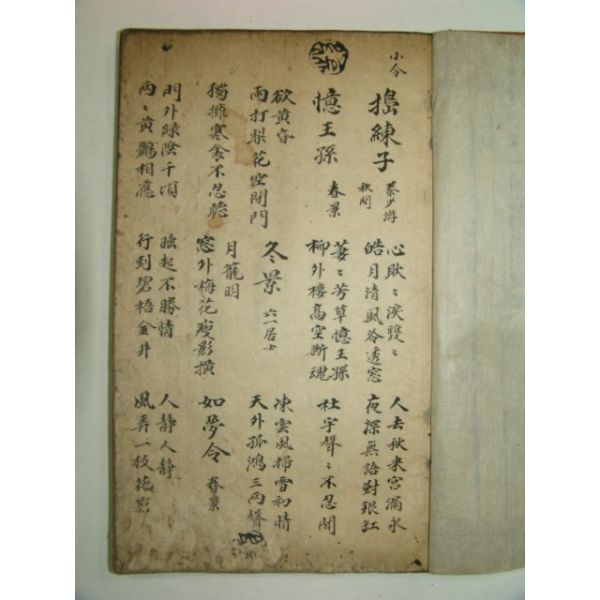 小令
搗練子 秦少游
秋閨
心耿〻淚雙〻
皓月清風冷透窓
人去秋来宮漏永
夜深無語對銀釭
憶王孫 春景
萋〻芳草憶王孫
柳外樓高空断魂
杜宇聲〻不忍聞
欲黄昏
雨打梨花空閉門
冬景 六一居士
凍雲風掃雪初晴
天外孤鴻三兩聲
獨擁寒衾不忍聽
月籠明
窓外梅花瘦影横
如夢令 春景
門外綠陰千頃
兩〻黄鸝相應
睡起不勝情
行到碧梧金井
人静人静
風弄一枝花影